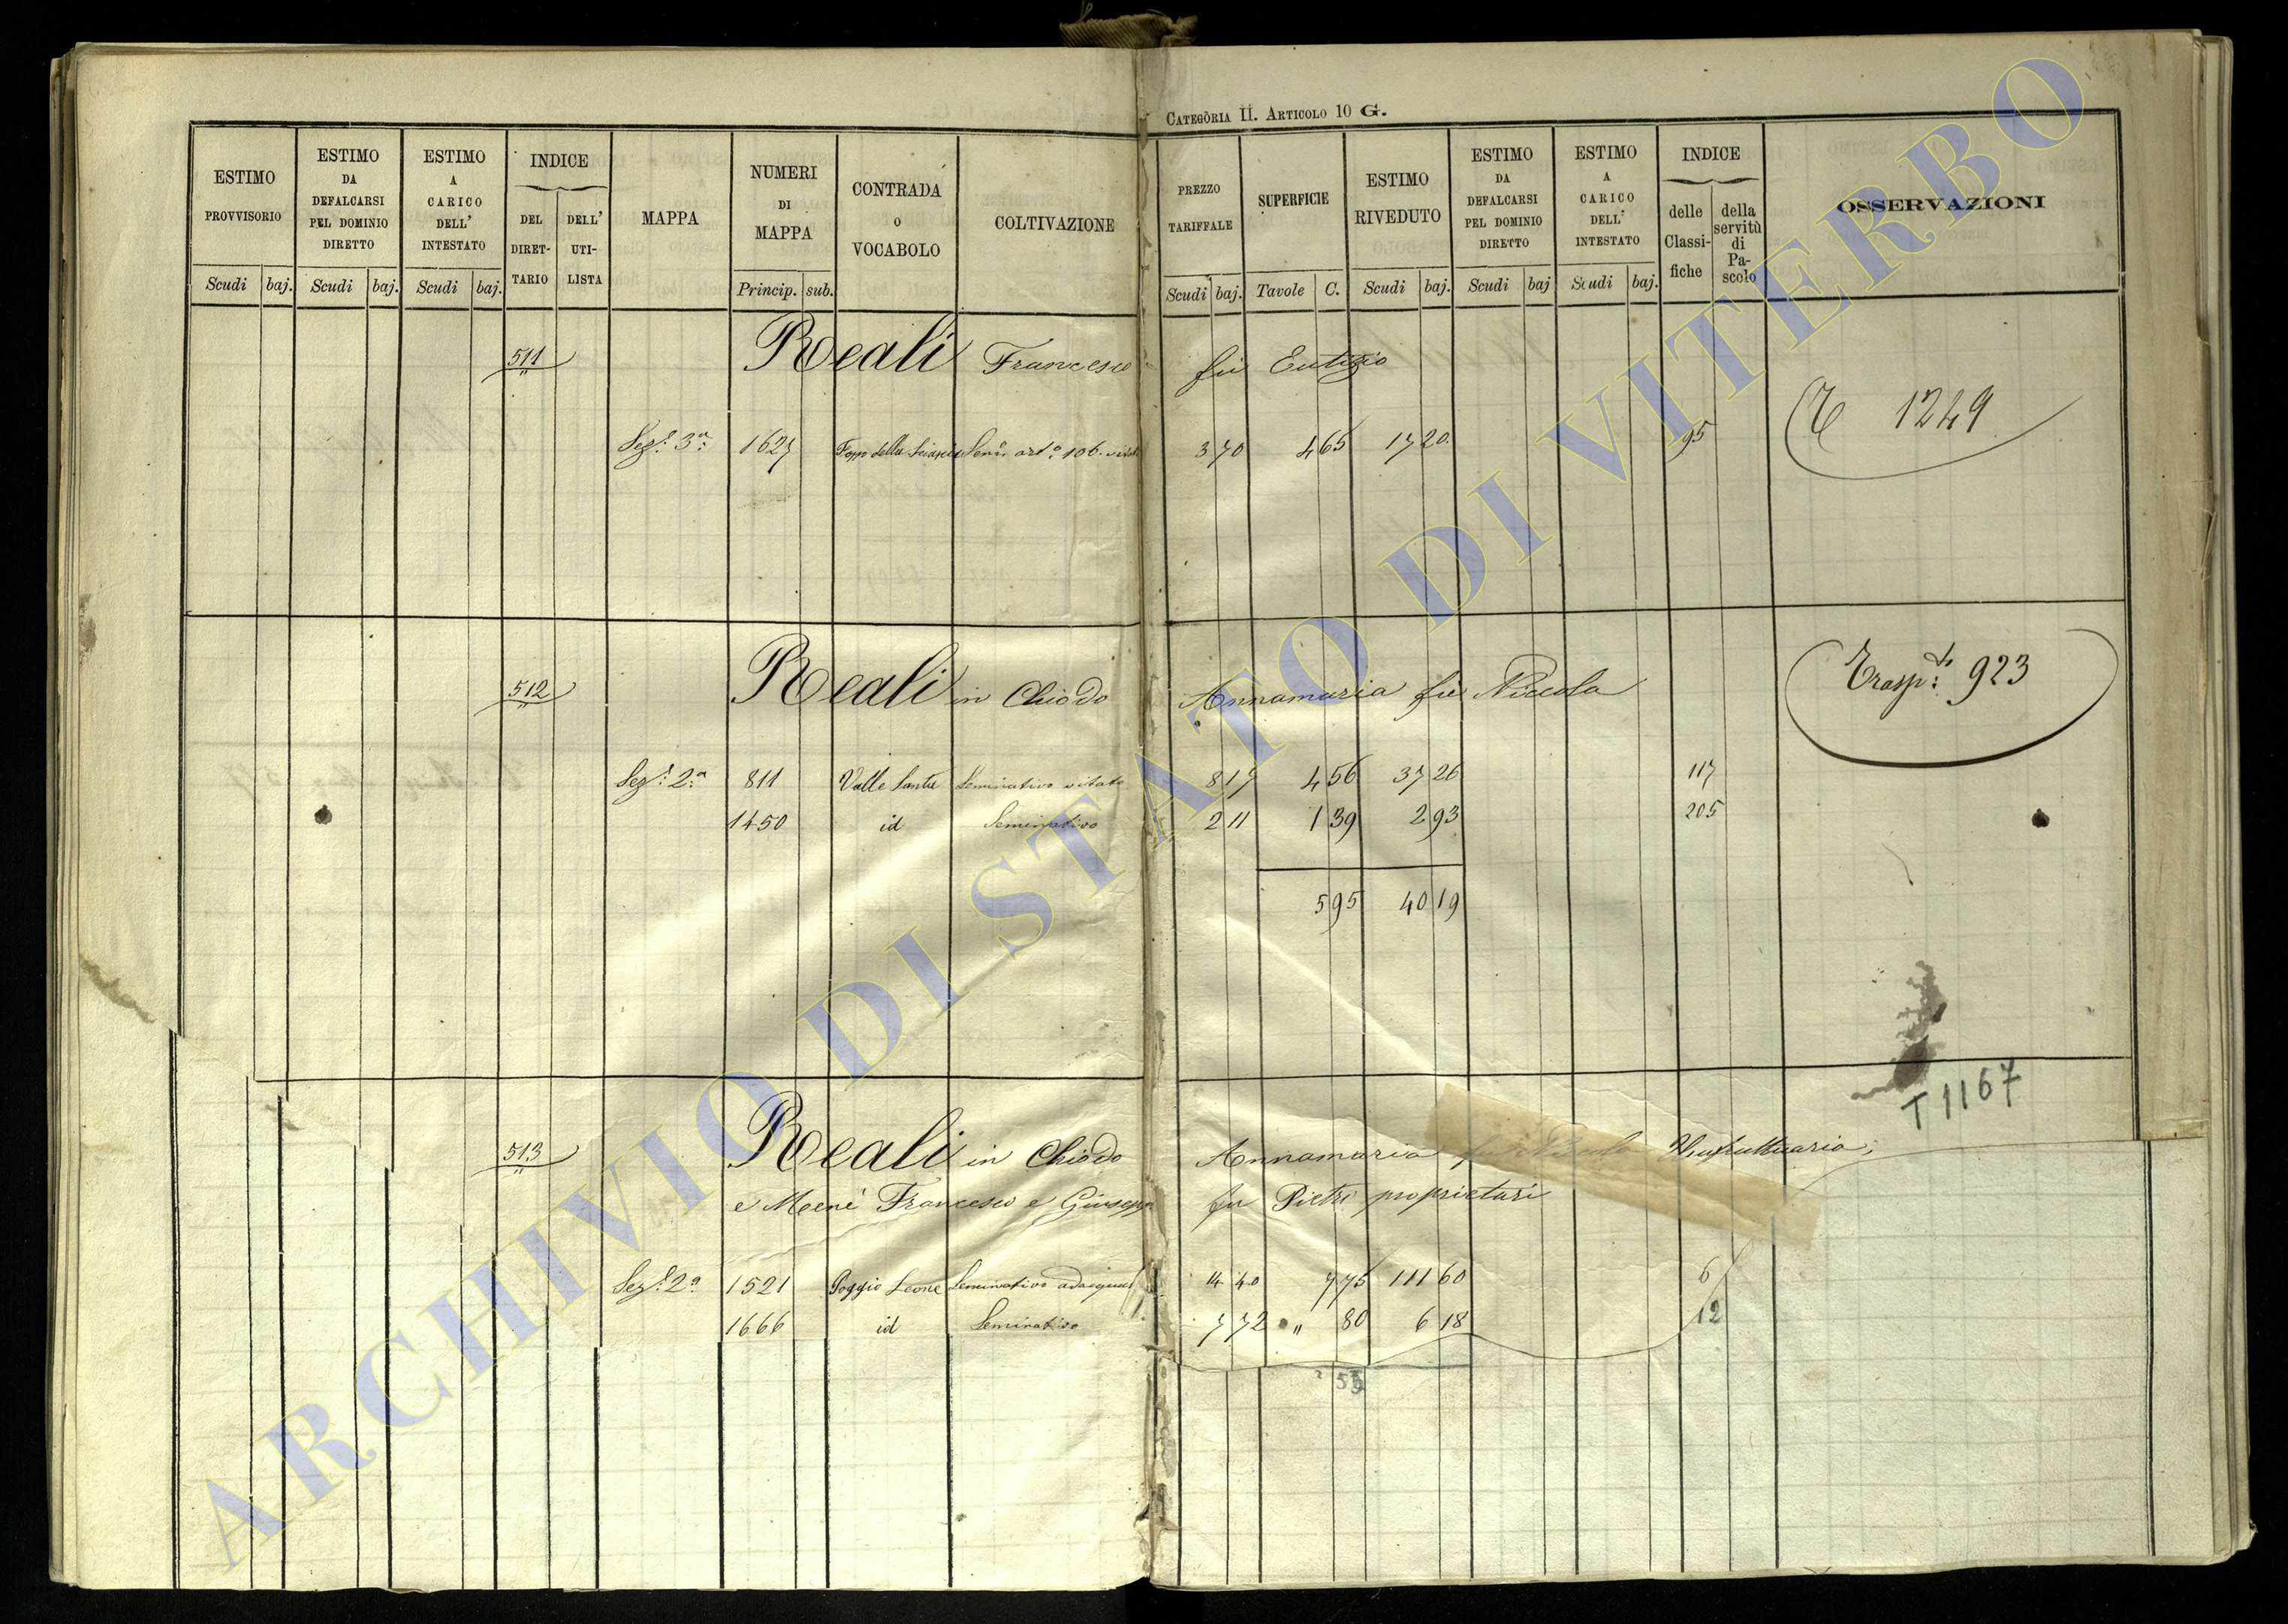 CATEGORIA II. ARTICOLO 10 G.
ESTIMO PROVVISORIO Scudi baj. ESTIMO DA DEFALCARSI PEL DOMINIO DIRETTO Scudi baj. ESTIMO A CARICO DELL' INTESTATO Scudi baj. INDICE DEL DIRETTARIO DELL' UTILISTA MAPPA NUMERI DI MAPPA Princip. sub. CONTRADA O VOCABOLO COLTIVAZIONE PREZZO TARIFFALE Scudi baj. SUPERFICIE Tavole C. ESTIMO RIVEDUTO Scudi baj. ESTIMO DA DEFALCARSI PEL DOMINIO DIRETTO Scudi baj ESTIMO A CARICO DELL' INTESTATO Scudi baj. INDICE delle Classifiche della servitù di Pascolo OSSERVAZIONI
511 Reali Francesco fu Eutizio
T 1249
Sez.e 3a 1627 370 465 1720 95
512 Reali in Chiodo Annamaria fu Niccola
Trasp.to 923
Sez.e 2a 811 Valle Santa Seminativo vitato 817 456 3726 117
1450 id Seminativo 211 139 293 205
595 4019
T 1167
513 Reali in Chiodo Annamaria fu Nicola Usufruttuaria,
e Francesco e Giuseppe fu Pietro proprietari
Sez.e 2a 1521 Poggio Leone Seminativo 14 40 775 111 60 6
1666 id Seminativo 772 " 80 6 18 12
ARCHIVIO DI STATO DI VITERBO